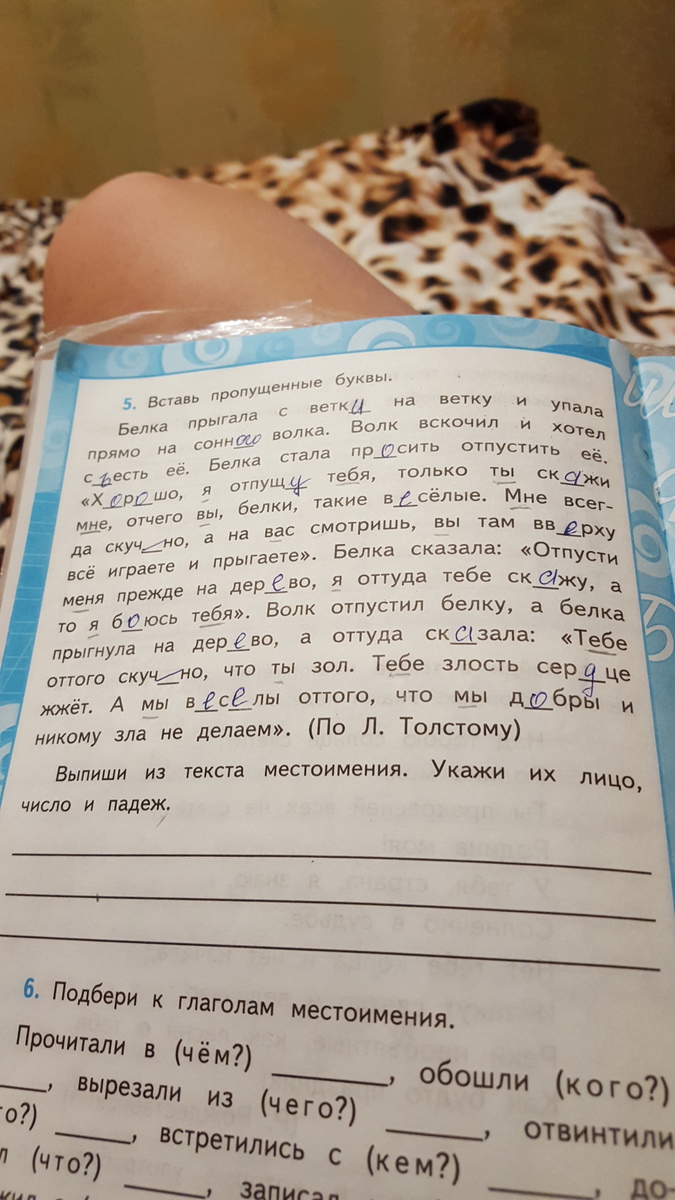 5. Вставь пропущенные буквы.
Белка прыгала с ветки на ветку и упала
прямо на сонного волка. Волк вскочил и хотел
съесть её. Белка стала просить отпустить её.
«Хорошо, я отпущу тебя, только ты скажи
мне, отчего вы, белки, такие весёлые. Мне всег-
да скучно, а на вас смотришь, вы там вверху
всё играете и прыгаете». Белка сказала: «Отпусти
меня прежде на дерево, я оттуда тебе скажу, а
то я боюсь тебя». Волк отпустил белку, а белка
прыгнула на дерево, а оттуда сказала: «Тебе
оттого скучно, что ты зол. Тебе злость сердце
жжёт. А мы веселы оттого, что мы добры и
никому зла не делаем». (По Л. Толстому)
Выпиши из текста местоимения. Укажи их лицо,
число и падеж.
6. Подбери к глаголам местоимения.
Прочитали в (чём?) ______, обошли (кого?)
____, вырезали из (чего?) ______, отвинтили
____, встретились с (кем?) ______, до-
(что?) ____, записал